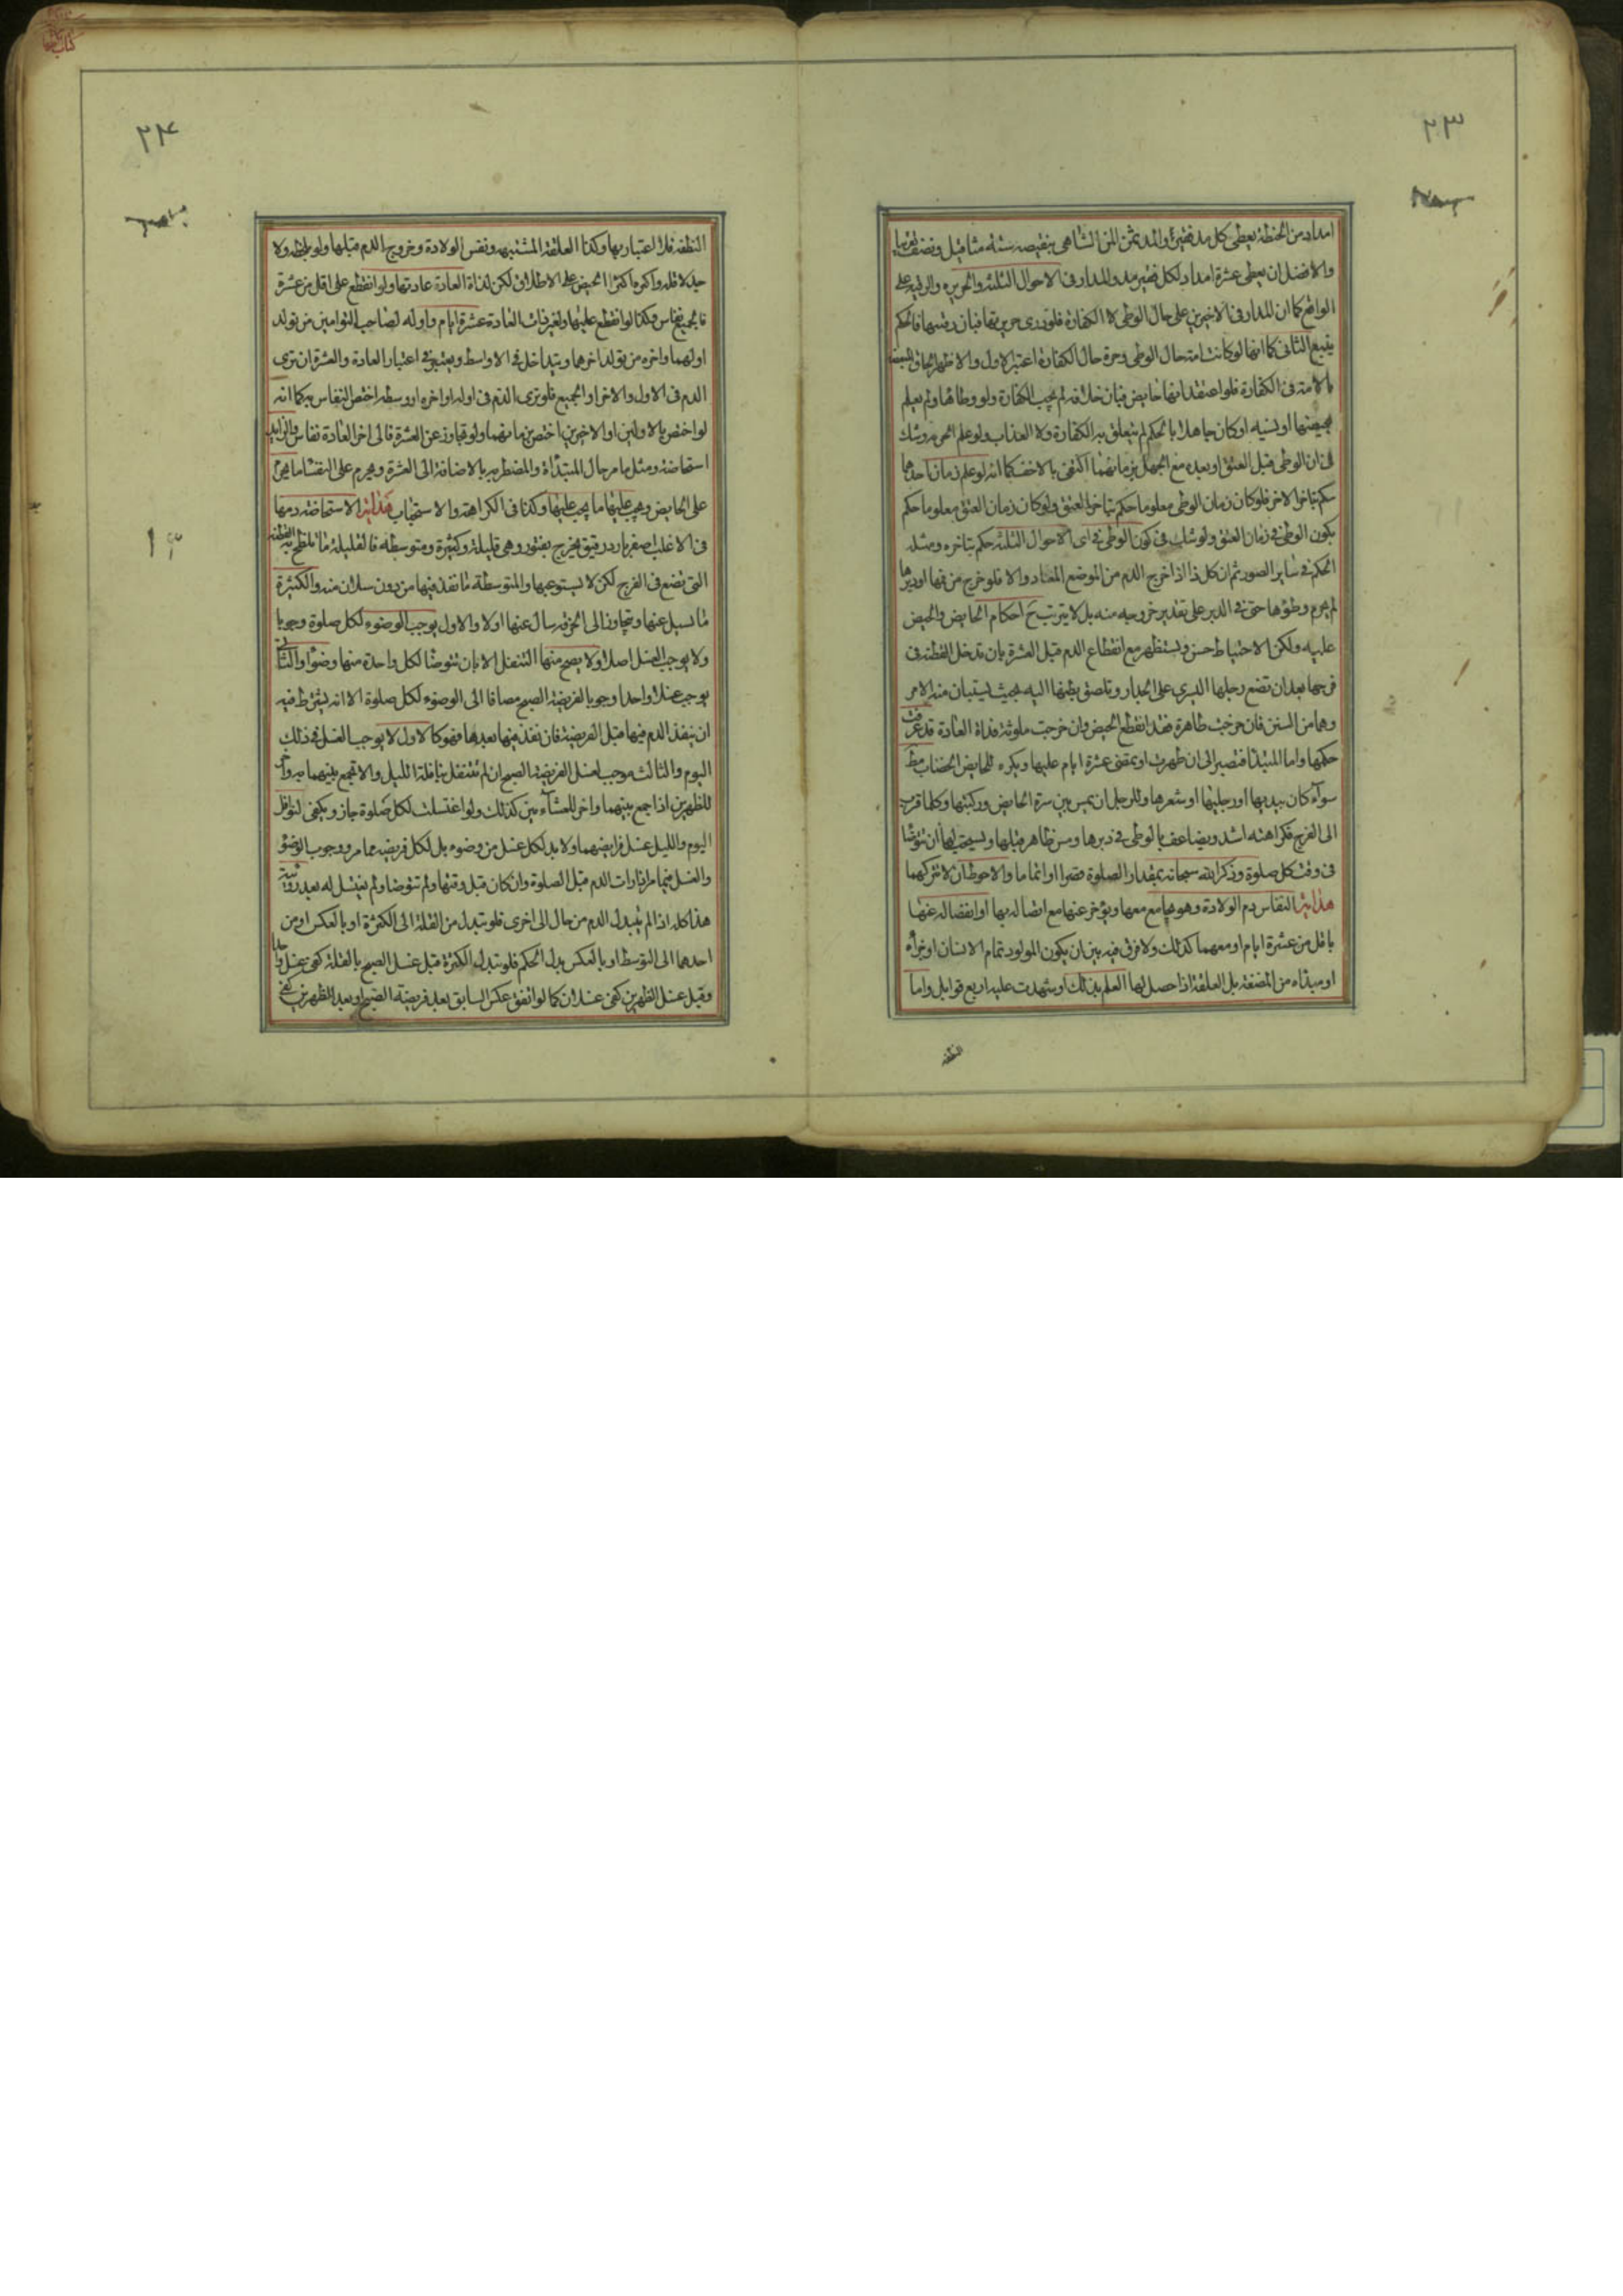 ٢٣
امداد من الحنطة يعطى كل مد فقيرا والمد ثمن المن الشاهى بنقيصه ستة مثاقيل ونصف تقريبا
والافضل ان يعطى عشرة امداد لكل فقير مد والمدار فى الاحوال الثلثة والحرية والرقية على
الواقع كما ان المدار فى الاخيرين على حال الوطى لا الكفارة فلو زعم حريتها فبان رقيتها فالحكم
يتبع الثانى كما انها لو كانت امة حال الوطى وحرة حال الكفارة اعتبر الاول والاظهر الحاق المبعضة
بالامة فى الكفارة فلو اعتقد انها حايض فبان خلافه لم يجب الكفارة ولو وطاها ولم يعلم
بحيضها او نسيه او كان جاهلا بالحكم لم يتعلق به الكفارة ولا العذاب ولو علم الحرمة وشك
فى ان الوطى قبل العتق او بعده مع الجهل بزمانهما اكتفى بالاخف كما انه لو علم زمان احدهما
حكم بتاخر الاخر فلو كان زمان الوطى معلوما حكم بتاخر العتق ولو كان زمان العتق معلوما حكم
بكون الوطى فى زمان العتق ولو شك فى كون الوطى فى اى الاحوال الثلثة حكم بتاخره ومثله
الحكم فى ساير الصور ثم ان كل ذا اذا خرج الدم من الموضع المعتاد والا فلو خرج من فمها او دبرها
لم يحرم وطؤها حتى فى الدبر على تقدير خروجه منه بل لا يترتب ح احكام الحايض والحيض
عليه ولكن الاحتياط حسن وتستظهر مع انقطاع الدم قبل العشرة بان تدخل القطنة فى
فرجها بعد ان تضع رجلها اليسرى على الجدار وتلصق بطنها اليه بحيث يستبان منه الامر
وهما من السنن فان خرجت طاهرة فقد انقطع الحيض وان خرجت ملوثة فذاة العادة قد عرفت
حكمها واما المبتدأة فتصبر الى ان طهرت او تمضى عشرة ايام عليها ويكره للحايض الخضاب مط
سواء كان بيديها او رجليها او شعرها وللرجل ان يمس بين سرة الحايض وركبتها وكلما قرب
الى الفرج فكراهته اشد ويضاعف بالوطى فى دبرها ومس ظاهر قبلها ويستحب لها ان تتوضا
فى وقت كل صلوة وذكر الله سبحانه بمقدار الصلوة قصرا او اتماما والاحوط ان لا تتركهما
هداية النفاس دم الولادة وهو يجامع معها ويؤخر عنها مع اتصاله بها او انفصاله عنها
باقل من عشرة ايام او معهما كذلك ولا فرق فيه بين ان يكون المولود تمام الانسان او جزأه
او مبدأه من المضغة بل العلقة اذا حصل لها العلم بذلك او شهدت عليه اربع قوابل واما
النطفه
٢٤
النطفه فلا اعتبار بها وكذا العلقة المشتبهه ونفس الولادة وخروج الدم قبلها ولو بلحظه ولا
حد لاقله واكثره اكثر الحيض على الاطلاق لكن لذاة العادة عادتها ولو انقطع على اقل من عشرة
فالجميع نفاس وكذا لو انقطع عليها ولغير ذات العادة عشرة ايام واوله لصاحب التوامين من تولد
اولهما واخره من تولد اخرهما ويتداخل فى الاواسط ويعتبر فى اعتبار العادة والعشرة ان ترى
الدم فى الاول والاخر او الجميع فلو ترى الدم فى اوله او اخره او وسطه اختص النفاس به كما انه
لو اختص بالاولين او الاخيرين اختص بزمانهما ولو تجاوز عن العشرة فالى اخر العادة نفاس والزايد
استحاضة ومثل ما مر حال المبتدأة والمضطربه بالاضافة الى العشرة ويحرم على النفساء ما يحرم
على الحايض ويجب عليها ما يجب عليها وكذا فى الكراهة والاستحباب هداية الاستحاضة دمها
فى الاغلب اصفر بارد رقيق يخرج بفتور وهى قليلة وكثيرة ومتوسطه فالقليلة ما تلطخ به القطنة
التى تضع فى الفرج لكن لا يستوعبها والمتوسطة ما نفذ فيها من دون سيلان منه والكثيرة
ما يسيل عنها ويتجاوز الى الخرقه سال عنها اولا والاول يوجب الوضوء لكل صلوة وجوبا
ولا يوجب الغسل اصلا ولا يصح منها التنفل الا بان تتوضا لكل واحدة منها وضوا والثانى
يوجب غسلا واحدا وجوبا لفريضة الصبح مضافا الى الوضوء لكل صلوة الا انه يشترط فيه
ان ينفذ الدم فيها قبل الفريضة فان نفذ فيها بعدها فهو كالاول لا يوجب الغسل فى ذلك
اليوم والثالث موجب لغسل الفريضة الصبح ان لم تتنفل بنافلة الليل والا تجمع بينهما به واخر
للظهرين اذا جمع بينهما واخر للعشاءين كذلك ولو اغتسلت لكل صلوة جاز ويكفى لنوافل
اليوم والليل غسل فرايضهما ولا بد لكل غسل من وضوء بل لكل فريضه مما مر ووجوب الوضو
والغسل فيما مر اذا رات الدم قبل الصلوة وان كان قبل وقتها ولم تتوضا ولم يغتسل له بعد رؤيته
هذا كله اذا لم يتبدل الدم من حال الى اخرى فلو تبدل من القلة الى الكثرة او بالعكس او من
احدهما الى التوسط او بالعكس بدل الحكم فلو تبدل الكثرة قبل غسل الصبح بالقلة كفى غسل واحد
وقبل غسل الظهرين كفى غسلان كما لو اتفق عكس السابق بعد فريضة الصبح او بعد الظهرين كفى